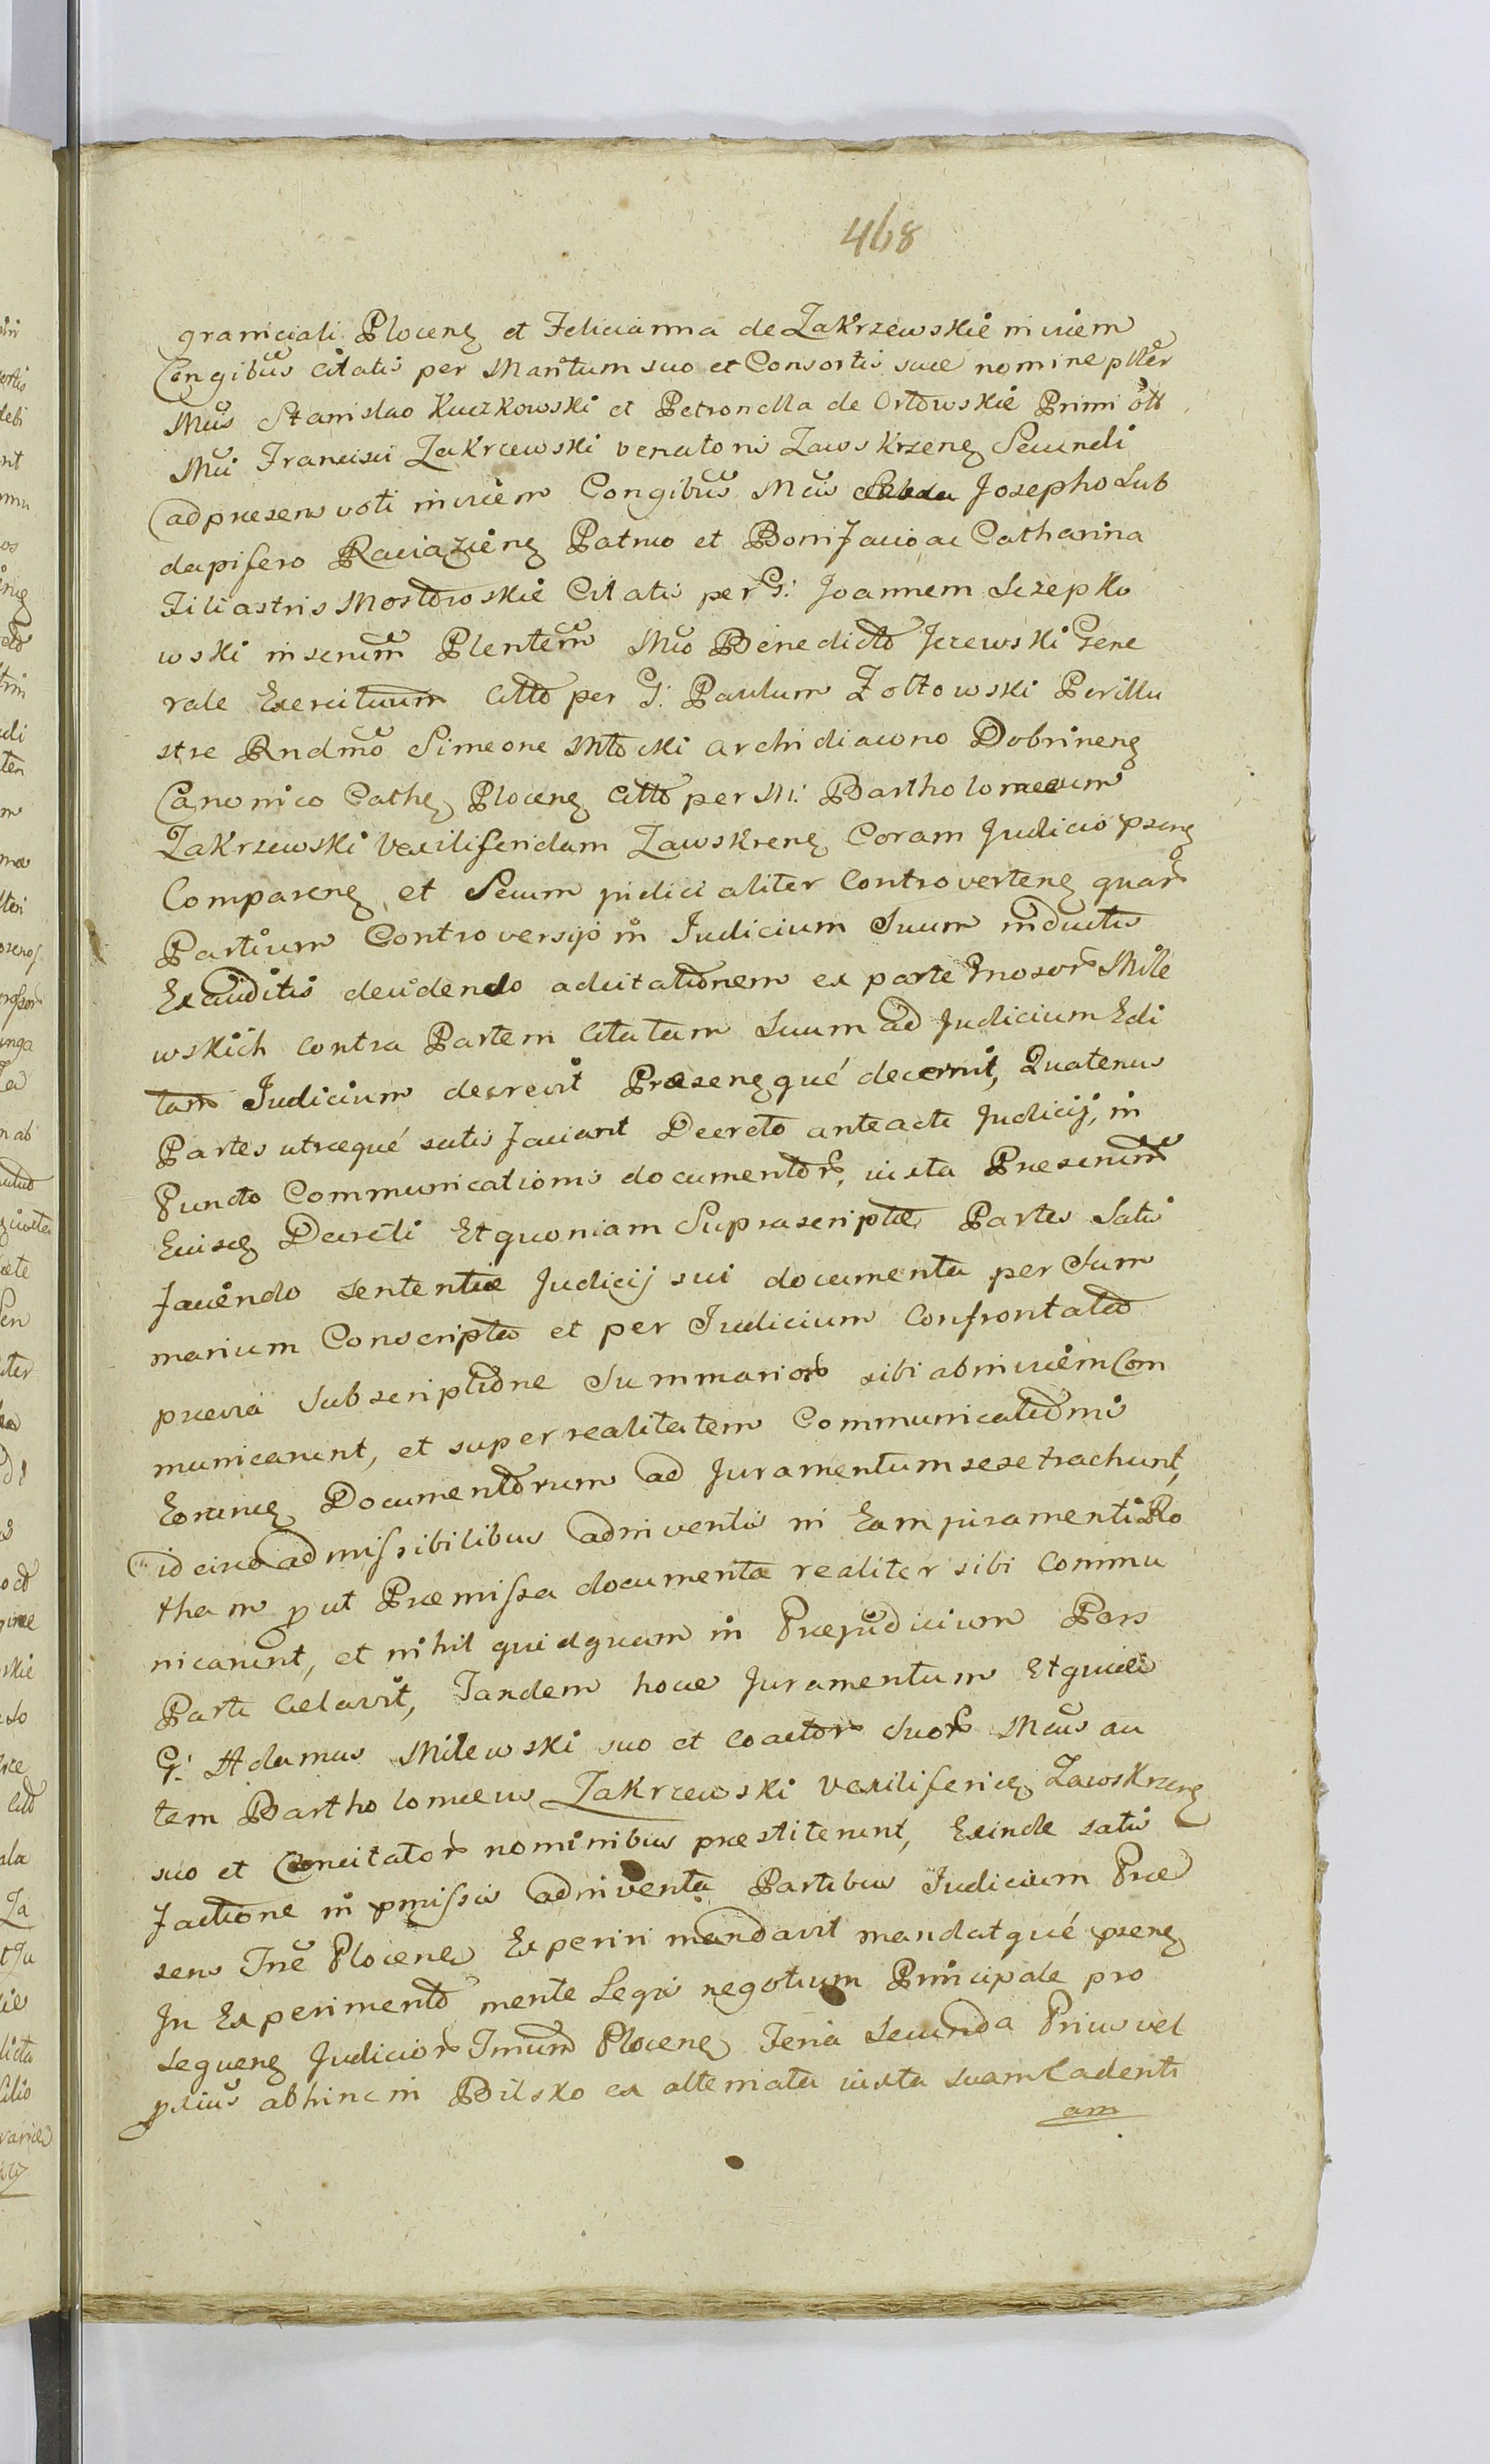 468
graniciali Plocenз et Felicianna de Zakrzewskie invicem
Congibus citatis per Maritum suo et Consortis suae nomine plter
Mcis Stanislao Kuczkowski et Petronella de Orłowskie Primi ott
Mci Francisci Zakrzewski venatoris Zawskrzenз Secundi
ad praesens voti invicem Congibus Mcis Josepho Sub
dapifero Raciązienз Patruo et Bonifacio ac Catharina
Filiastris Mostowskie Citatis per G: Joannem Szepko
wski inserum Plentem Mco Benedicto Jezewski Gene
rale Exercituum Citto per G: Paulum Zołtowski Perillu
stre Rndmo Simeone Młocki archidiacono Dobrinenз
Canonico Cathз Plocenз Citto per M: Bartholomaeum
Zakrzewski Vexiliferidam Zawskrenз Coram Judicio psenз
Comparenз et Secum judicialiter Controvertenз quar
Partium Controversijs in Judicium Suum inductis
Exauditis decidendo adcitationem ex parte Gnosor Mile
wskich contra Partem Citatam Suum ad Judicium Edi
tam Judicium decrevit Praesenзqué decernit, Quatenus
Partes utraequé satis faciant Decreto anteacti Judicij, in
Puncto Communicationis documentor, iuxta Praeserum
Euisdз Decreti Et quoniam Suprascriptae Partes Satis
faciendo sententiae Judicij sui documenta per Sum
marium Conscripta et per Judicium Confrontata
praevia Subscriptione Summarior sibi ab invicem Com
municarunt, et super realitatem Communicationis
Eorumз Documentorum ad Juramentum sese trachunt,
idcirco admissibilibus adinventis in Eam juramenti Ro
tham put Praemissa documenta realiter sibi Commu
nicarunt, et nihil quidquam in Praejudicium Pars
Parti Celavit, Tandem hocce Juramentum Et quidem
G: Adamus Milewski suo et Coactor Suor Mcus au
tem Bartholomaeus Zakrzewski Vexiliferidз Zawskrzenз
suo et Concitator nominibus praestiterunt, Exinde satis
factione in pmissis adinventa Partibus Judicium Prae
sens Tre Plocense Experiri mandavit mandatqué psenз
In Experimento mente Legis negotium Principale pro
sequenз Judicior Trium Plocenз Feria Secunda Prius vel
pxius abhinc in Bilsko ex alternata iuxta suam Cadenti
am